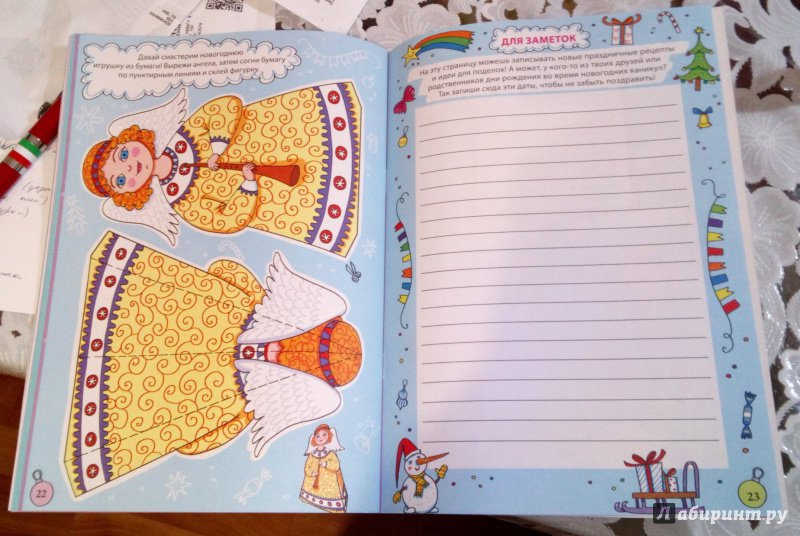 Давай смастерим новогоднюю
игрушку из бумаги! Вырежи ангела, затем согни бумагу
по пунктирным линиям и склей фигурку.
22
ДЛЯ ЗАМЕТОК
На эту страницу можешь записывать новые праздничные рецепты
и идеи для поделок! А может, у кого-то из твоих друзей или
родственников дни рождения во время новогодних каникул?
Так запиши сюда эти даты, чтобы не забыть поздравить!
23
Лабиринт.ру